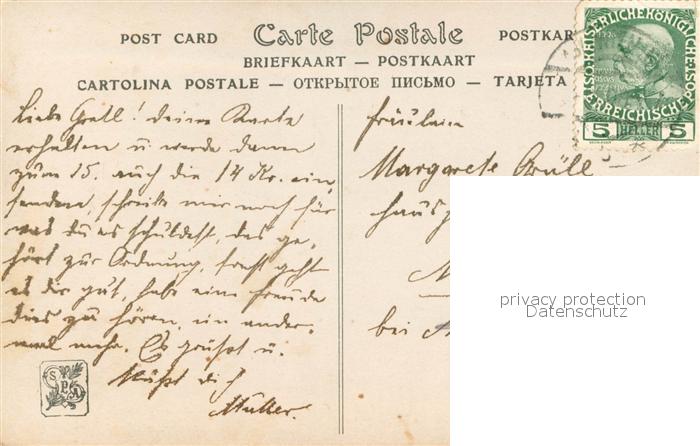 POST CARD Carte Postale POSTKAR
BRIEFKAART — POSTKAART
CARTOLINA POSTALE — ОТКРЫТОЕ ПИСЬМО — TARJETA
KAISERLICHE KÖNIGLICHE ÖSTERREICHISCHE POST
5 HELLER 5
Liebe Gretl! deine Karte
erhalten u werde dann
zum 15. auch die 14 Kr. ein
senden, schreibe mir noch für
was du es schuldest, das ge-
hört zur Ordnung, sonst geht
es dir gut, habe eine Freude
dies zu hören, ein ander-
mal mehr. Es grüßt u.
küßt dich
Mutter.
Fräulein
Margarete
bei
privacy protection
Datenschutz